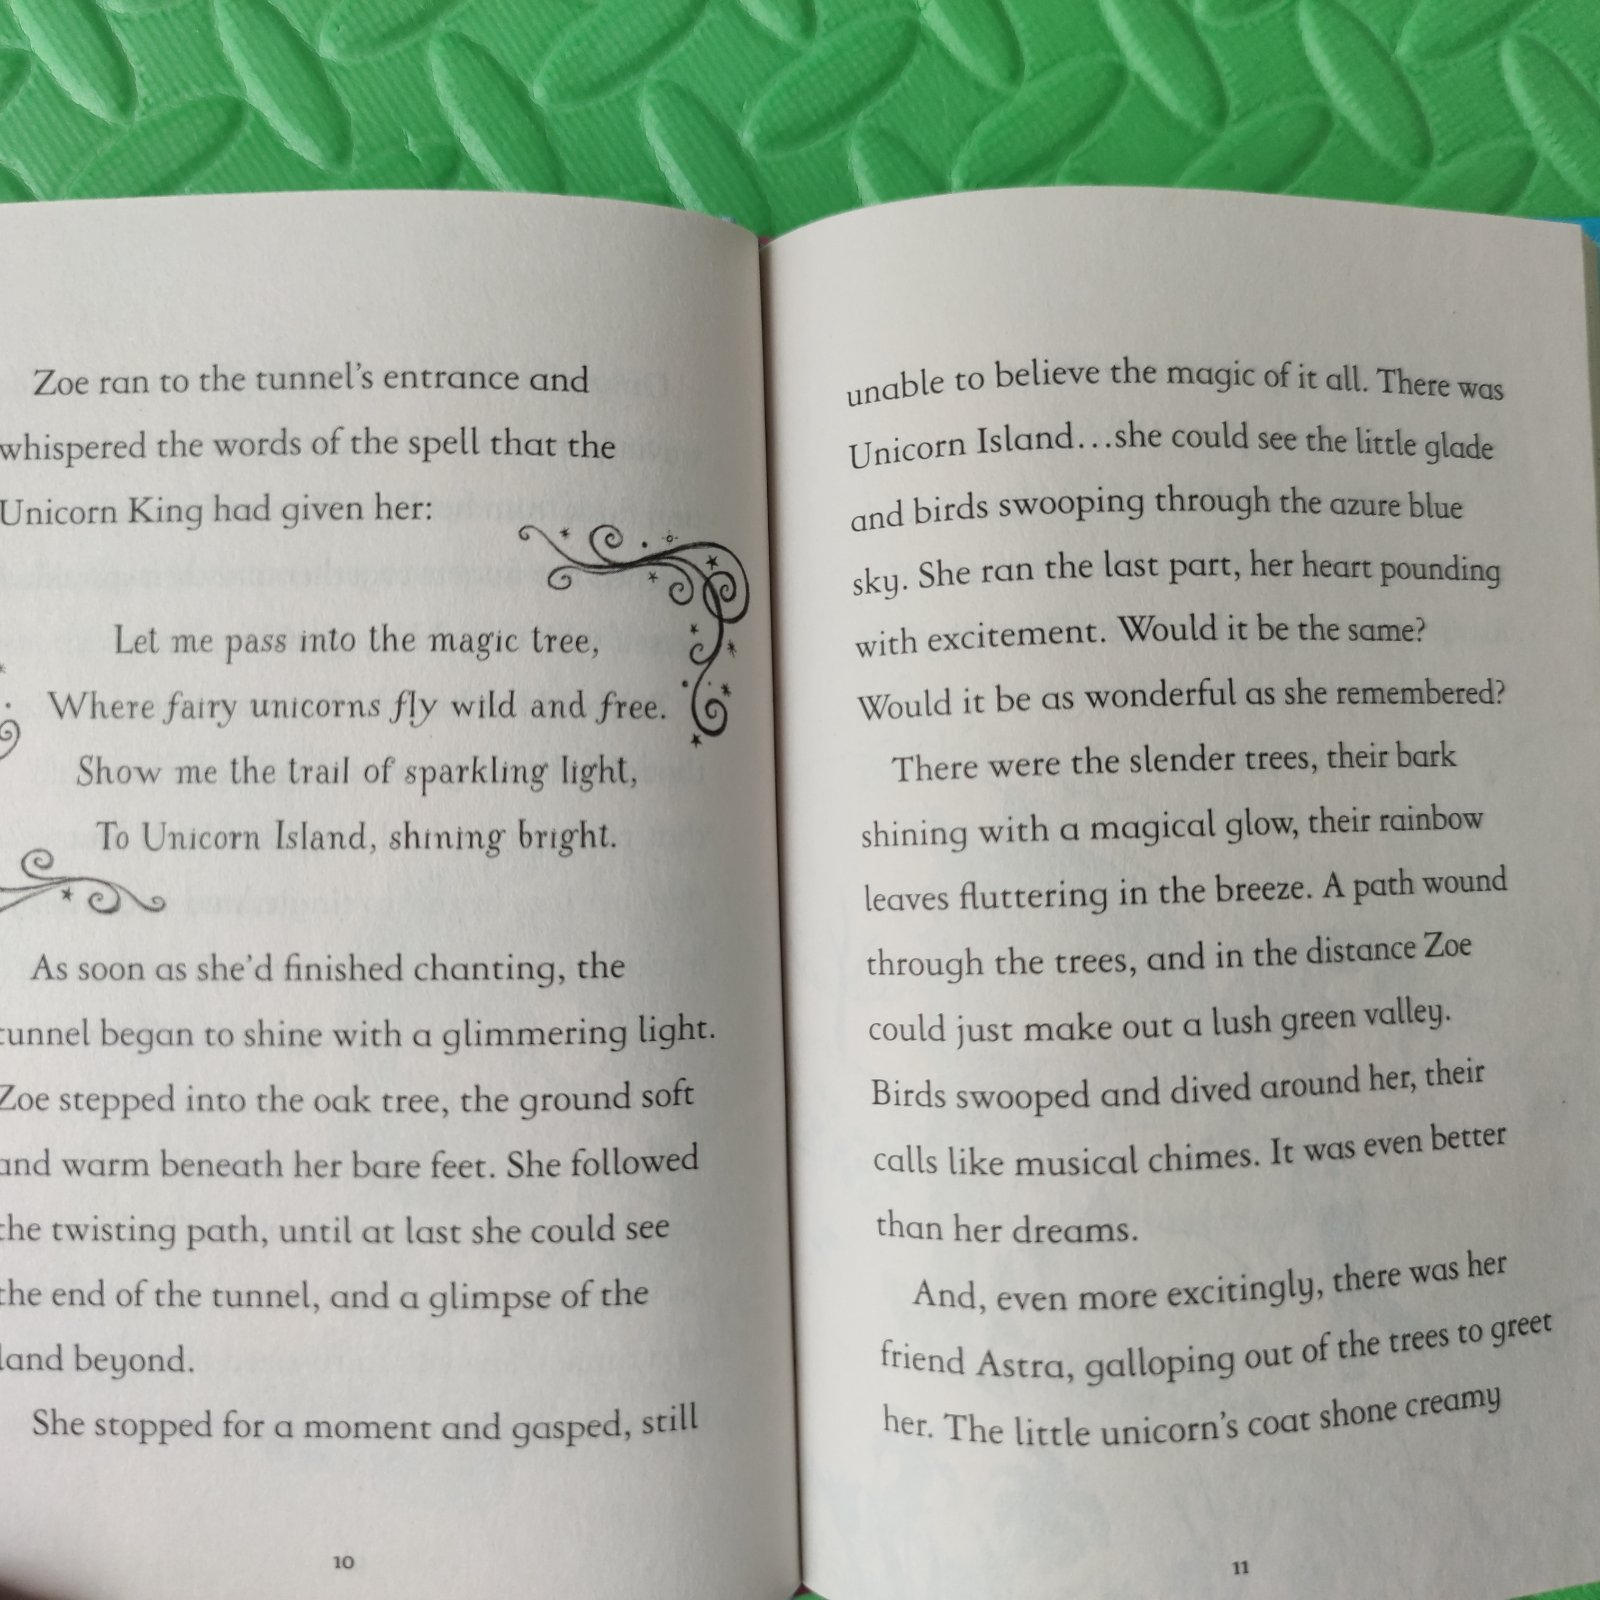 Zoe ran to the tunnel's entrance and
whispered the words of the spell that the
Unicorn King had given her:
Let me pass into the magic tree,
Where fairy unicorns fly wild and free.
Show me the trail of sparkling light,
To Unicorn Island, shining bright.
As soon as she'd finished chanting, the
tunnel began to shine with a glimmering light.
Zoe stepped into the oak tree, the ground soft
and warm beneath her bare feet. She followed
the twisting path, until at last she could see
the end of the tunnel, and a glimpse of the
land beyond.
She stopped for a moment and gasped, still
10
unable to believe the magic of it all. There was
Unicorn Island...she could see the little glade
and birds swooping through the azure blue
sky. She ran the last part, her heart pounding
with excitement. Would it be the same?
Would it be as wonderful as she remembered?
There were the slender trees, their bark
shining with a magical glow, their rainbow
leaves fluttering in the breeze. A path wound
through the trees, and in the distance Zoe
could just make out a lush green valley.
Birds swooped and dived around her, their
calls like musical chimes. It was even better
than her dreams.
And, even more excitingly, there was her
friend Astra, galloping out of the trees to greet
her. The little unicorn's coat shone creamy
11